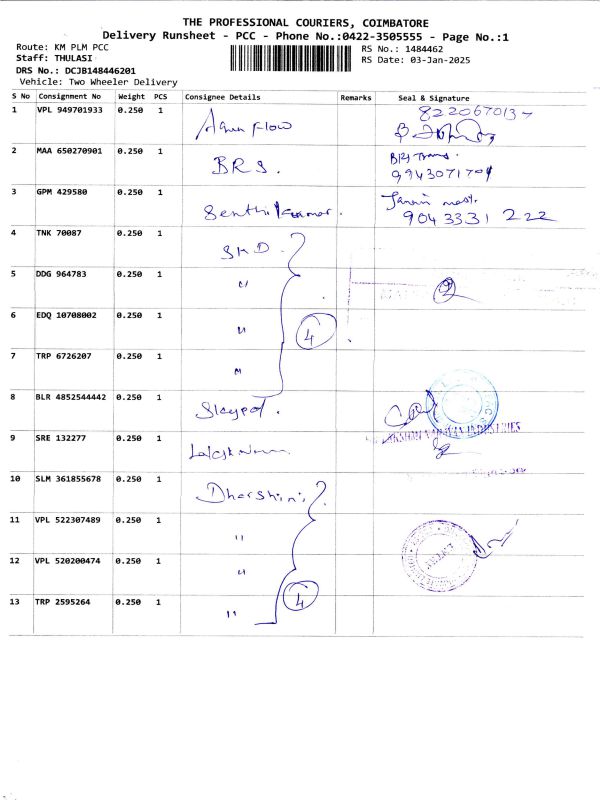 THE PROFESSIONAL COURIERS, COIMBATORE
Delivery Runsheet - PCC - Phone No.:0422-3505555 - Page No.:1
Route: KM PLM PCC RS No.: 1484462
Staff: THULASI RS Date: 03-Jan-2025
DRS No.: DCJB148446201
Vehicle: Two Wheeler Delivery
S No Consignment No Weight PCS Consignee Details Remarks Seal & Signature
1 VPL 949701933 0.250 1 Aqua Flow 822067013
2 MAA 650270901 0.250 1 BRS. BRS Trans. 9943071701
3 GPM 429580 0.250 1 Senthilkumar. 9043331222
4 TNK 70087 0.250 1 SKD.
5 DDG 964783 0.250 1 "
6 EDQ 10708002 0.250 1 " 4
7 TRP 6726207 0.250 1 "
8 BLR 4852544442 0.250 1
9 SRE 132277 0.250 1 INDUSTRIES
10 SLM 361855678 0.250 1 Dharshini
11 VPL 522307489 0.250 1 "
12 VPL 520200474 0.250 1 "
13 TRP 2595264 0.250 1 " 4